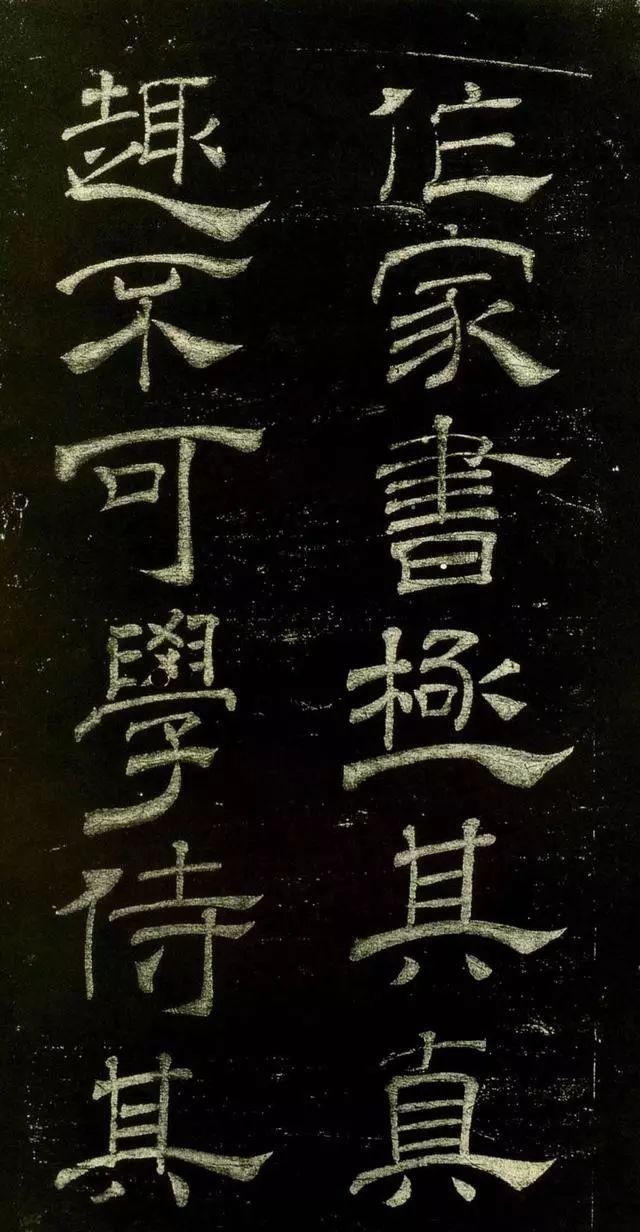 作家書極其真
趣不可學侍其